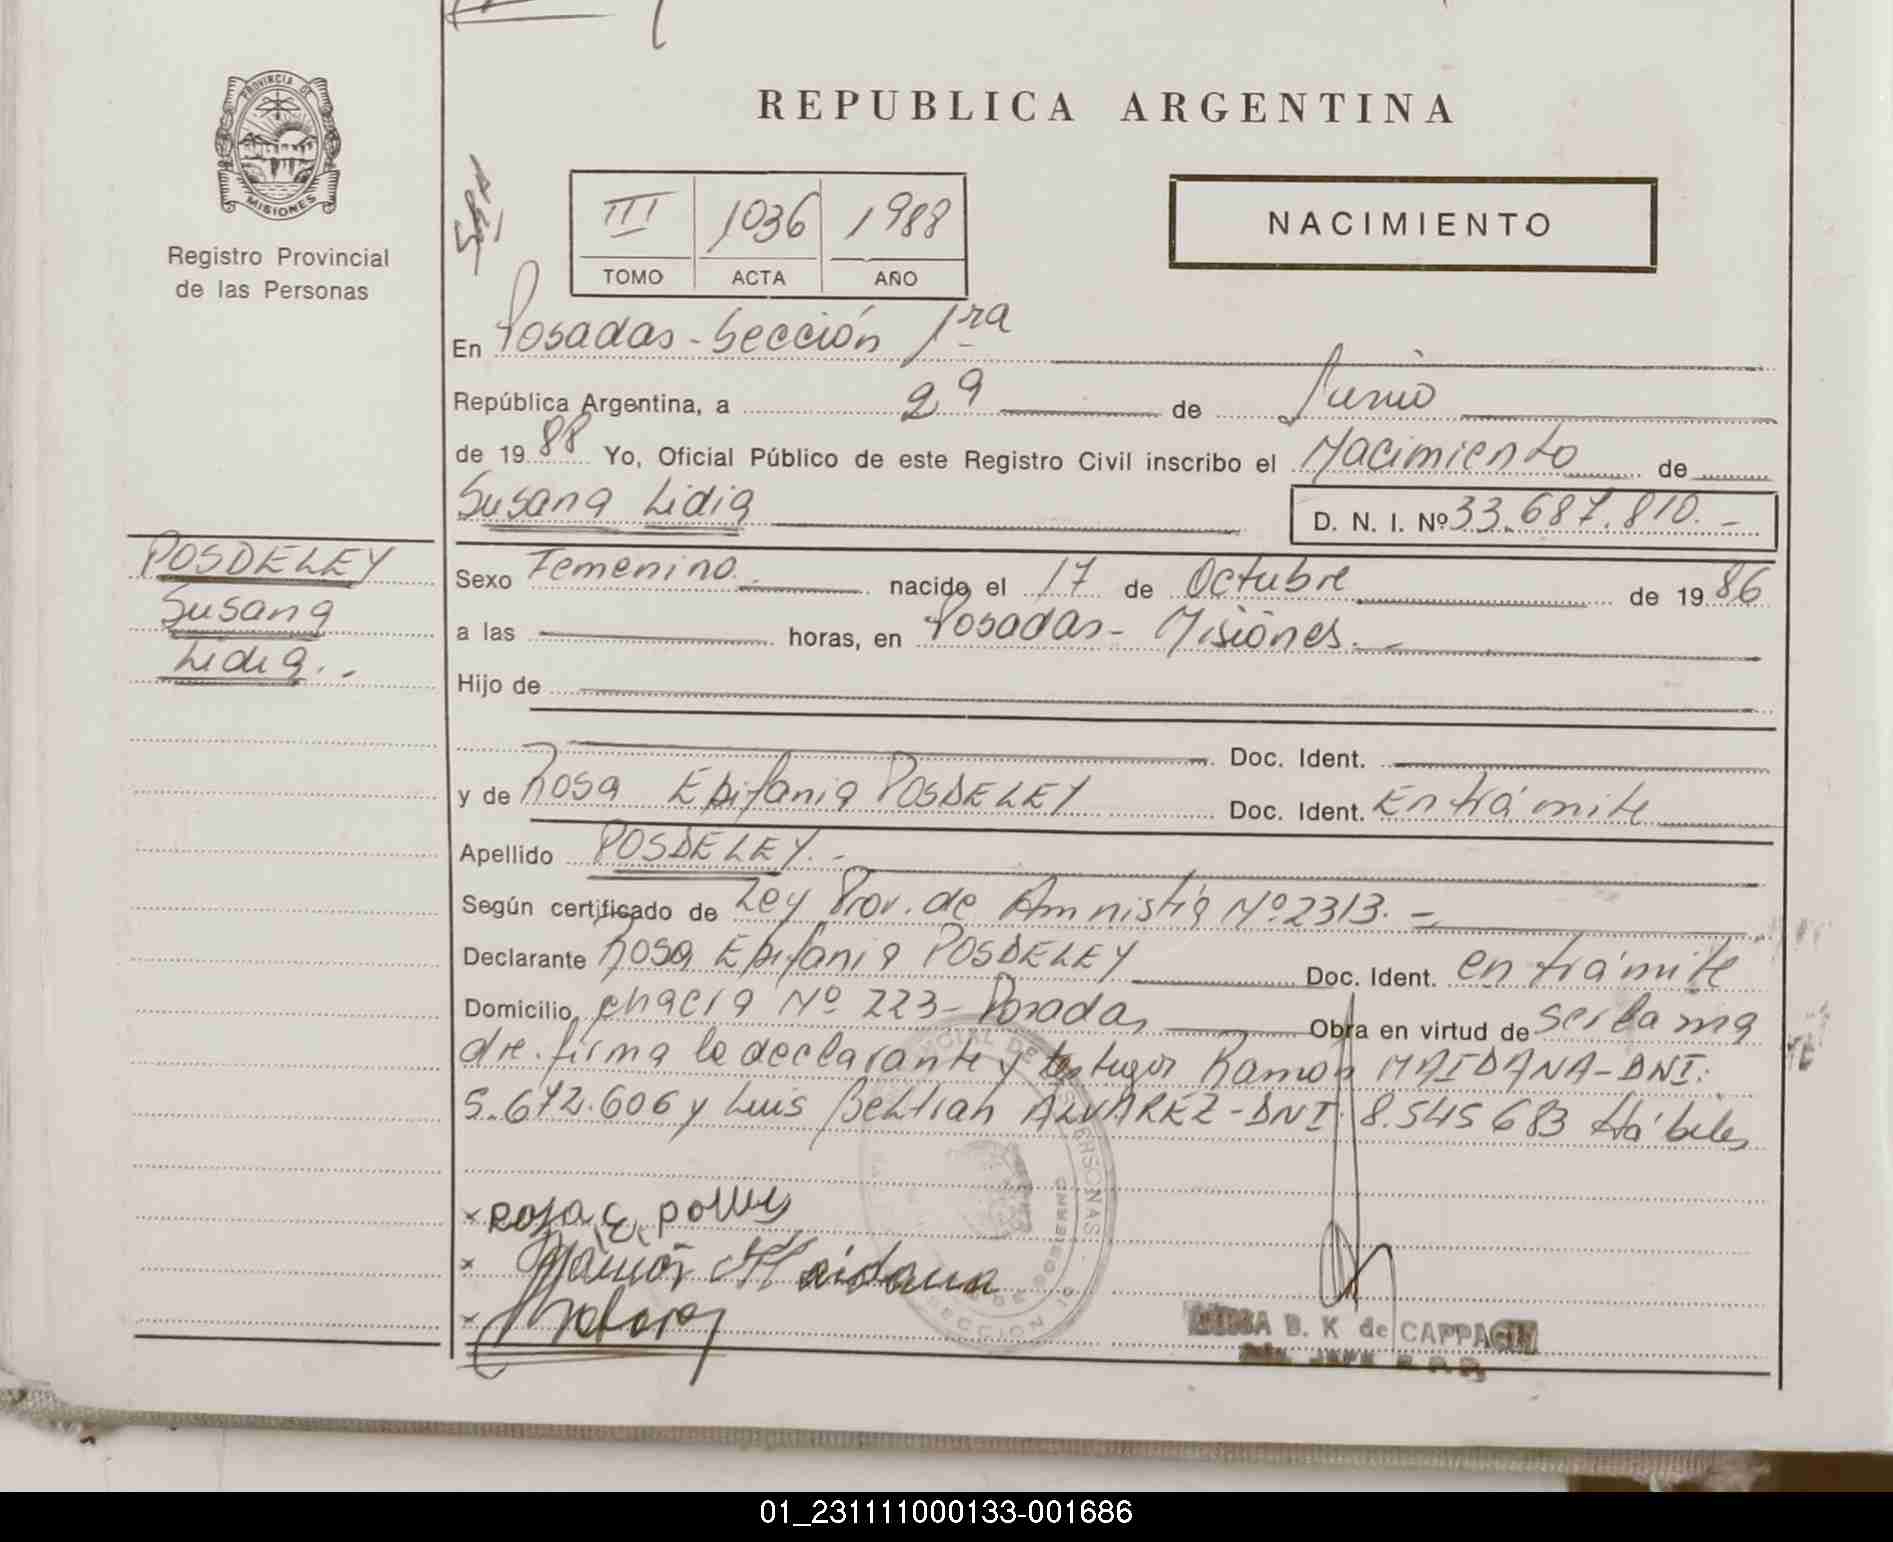 REPUBLICA ARGENTINA
PROVINCIA DE
MISIONES
Registro Provincial
de las Personas
III 1036 1988
TOMO ACTA AÑO
NACIMIENTO
En Posadas - Sección 1ra
República Argentina, a 29 de Junio
de 1988 Yo, Oficial Público de este Registro Civil inscribo el Nacimiento de
Susana Lidia
D. N. I. Nº 33.687.810. -
POSDELEY
Susana
Lidia. -
Sexo Femenino. nacido el 17 de Octubre de 1986
a las horas, en Posadas - Misiones. -
Hijo de
Doc. Ident.
y de Rosa Epifania POSDELEY Doc. Ident. En trámite
Apellido POSDELEY. -
Según certificado de Ley Prov. de Amnistía Nº 2313. -
Declarante Rosa Epifania POSDELEY Doc. Ident. en trámite
Domicilio chacra Nº 223 - Posadas Obra en virtud de ser la ma
dre. firma la declarante y testigos Ramon MAIDANA - DNI:
5.672.606 y Luis Beltran ALVAREZ - DNI: 8.545683 Hábiles
x Rosa E
x Ramón Maidana
x
SECCION
B. K de CAPPA
01_231111000133-001686